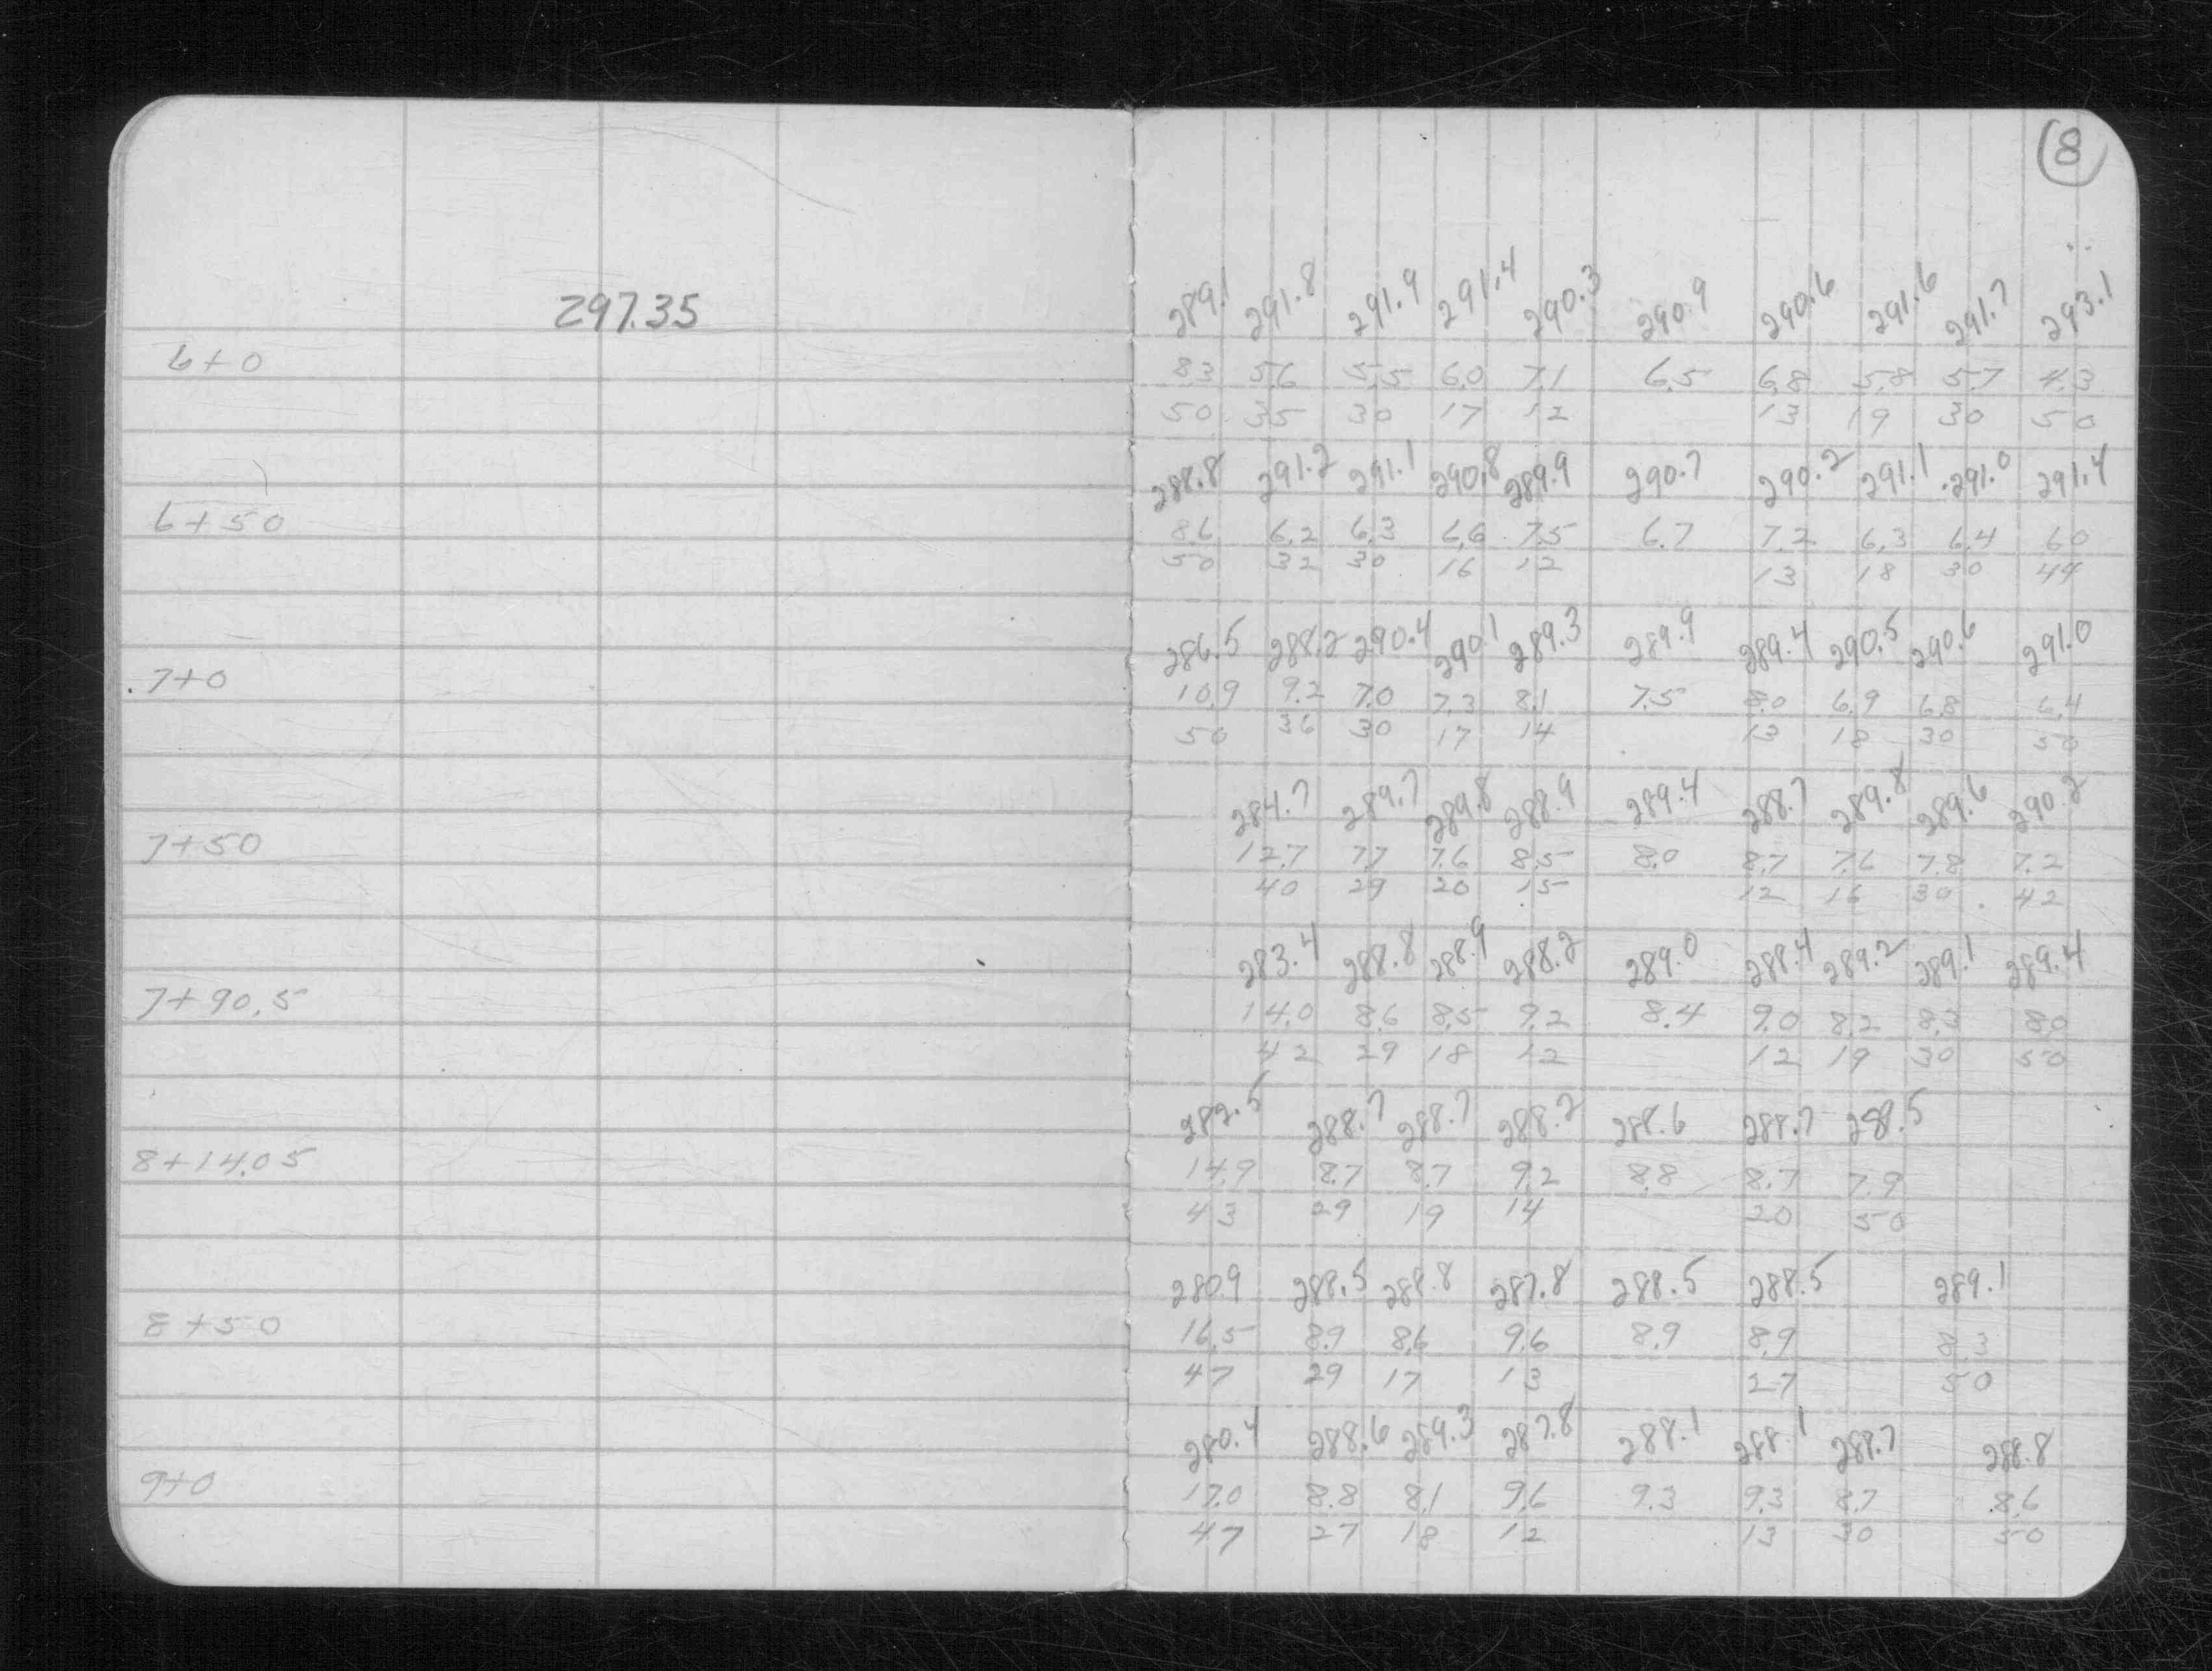 8
297.35
289.1 291.8 291.9 291.4 290.3 290.9 290.6 291.6 291.7 293.1
6+0 8.3 5.6 5.5 6.0 7.1 6.5 6.8 5.8 5.7 4.3
50 35 30 17 12 13 19 30 50
288.8 291.2 291.1 290.8 289.9 290.7 290.2 291.1 291.0 291.4
6+50 8.6 6.2 6.3 6.6 7.5 6.7 7.2 6.3 6.4 6.0
50 32 30 16 12 13 18 30 44
286.5 288.2 290.4 290.1 289.3 289.9 289.4 290.5 290.6 291.0
7+0 10.9 9.2 7.0 7.3 8.1 7.5 8.0 6.9 6.8 6.4
50 36 30 17 14 13 18 30 50
284.7 289.7 289.8 288.9 289.4 288.7 289.8 289.6 290.2
7+50 12.7 7.7 7.6 8.5 8.0 8.7 7.6 7.8 7.2
40 29 20 15 12 16 30 42
283.4 288.8 288.9 288.2 289.0 288.4 289.2 289.1 289.4
7+90.5 14.0 8.6 8.5 9.2 8.4 9.0 8.2 8.3 8.0
42 29 18 12 12 19 30 50
282.5 288.7 288.7 288.2 288.6 288.7 288.5
8+14.05 14.9 8.7 8.7 9.2 8.8 8.7 7.9
43 29 19 14 20 50
280.9 288.5 288.8 287.8 288.5 288.5 289.1
8+50 16.5 8.9 8.6 9.6 8.9 8.9 8.3
47 29 17 13 27 50
280.4 288.6 289.3 287.8 288.1 288.1 288.7 288.8
9+0 17.0 8.8 8.1 9.6 9.3 9.3 8.7 8.6
47 27 18 12 13 30 50